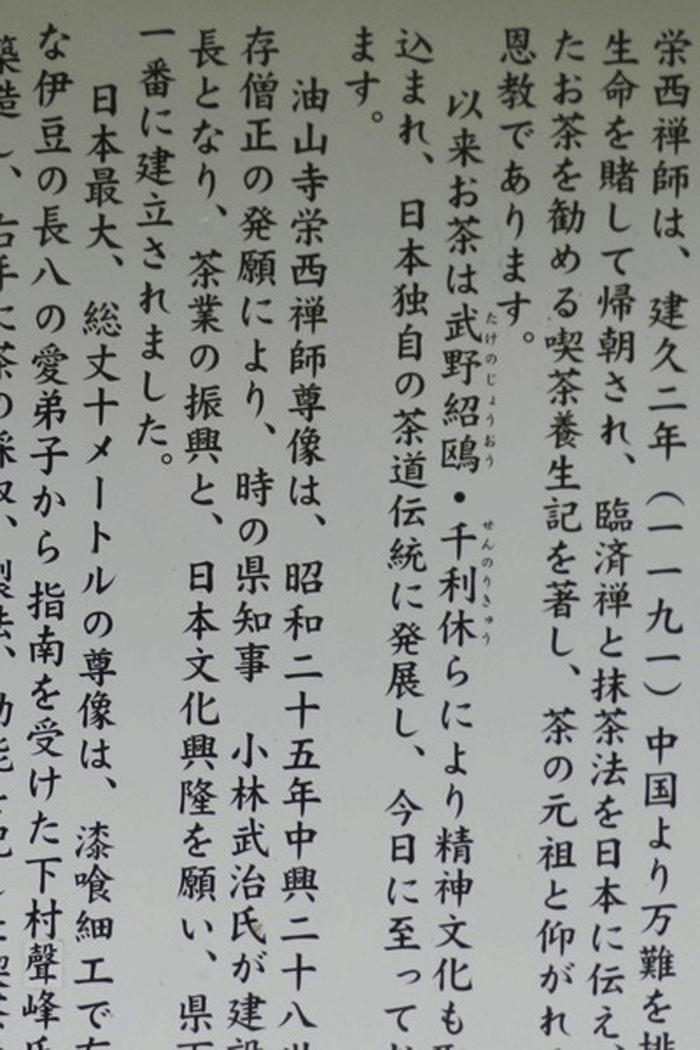 栄西禅師は、建久二年（一一九一）中国より万難を排
生命を賭して帰朝され、臨済禅と抹茶法を日本に伝え、
たお茶を勧める喫茶養生記を著し、茶の元祖と仰がれ
恩教であります。
以来お茶は武野紹鷗・千利休らにより精神文化も
たけのじょうおう
せんのりきゅう
込まれ、日本独自の茶道伝統に発展し、今日に至って
ます。
油山寺栄西禅師尊像は、昭和二十五年中興二十八世
存僧正の発願により、時の県知事　小林武治氏が建設
長となり、茶業の振興と、日本文化興隆を願い、県下
一番に建立されました。
日本最大、総丈十メートルの尊像は、漆喰細工で有
な伊豆の長八の愛弟子から指南を受けた下村聲峰氏
築造し、右手に茶の採取、製法、効能を記した喫茶